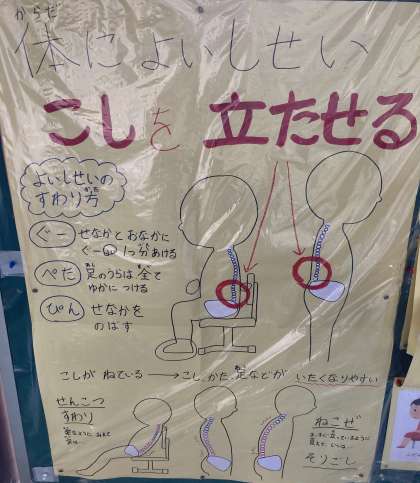 からだ
体によいしせい
こしを 立たせる
よいしせいの
すわり方
かた
ぐー せなかとおなかに
ぐー1つ分あける
ぺた 足のうらは全て
ゆかにつける
ぴん せなかを
のばす
こしが ねている → こし、かた、足などが いたくなりやすい
せんこつ
すわり
ねこぜ
そりごし